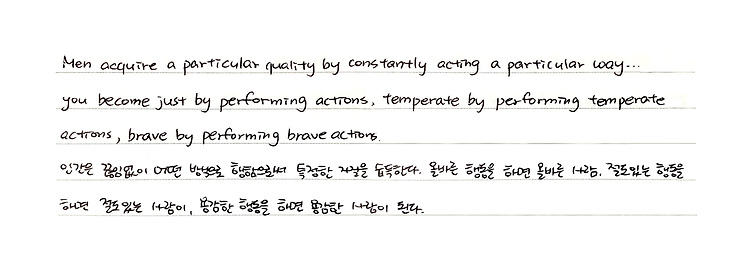 Men acquire a particular quality by constantly acting a particular way...
you become just by performing actions, temperate by performing temperate
actions, brave by performing brave actions.
인간은 끊임없이 어떤 방식으로 행함으로써 특정한 자질을 습득한다. 올바른 행동을 하면 올바른 사람, 절도있는 행동을
하면 절도있는 사람이, 용감한 행동을 하면 용감한 사람이 된다.